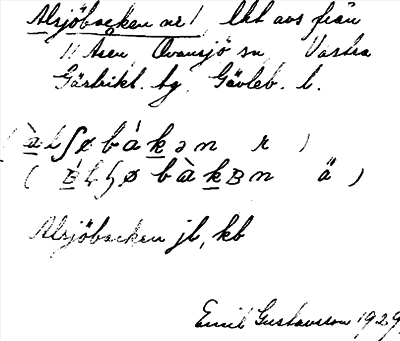 Alsjöbacken nr 1, lht avs från
11 Åsen, Ovansjö sn, Västra
Gästrikl. tg, Gävleb. l.
(àlʃøbákən r)
(ʙ́lʃøbàkʙn ä)
Alsjöbacken jb, kb
Emil Gustavsson 1929